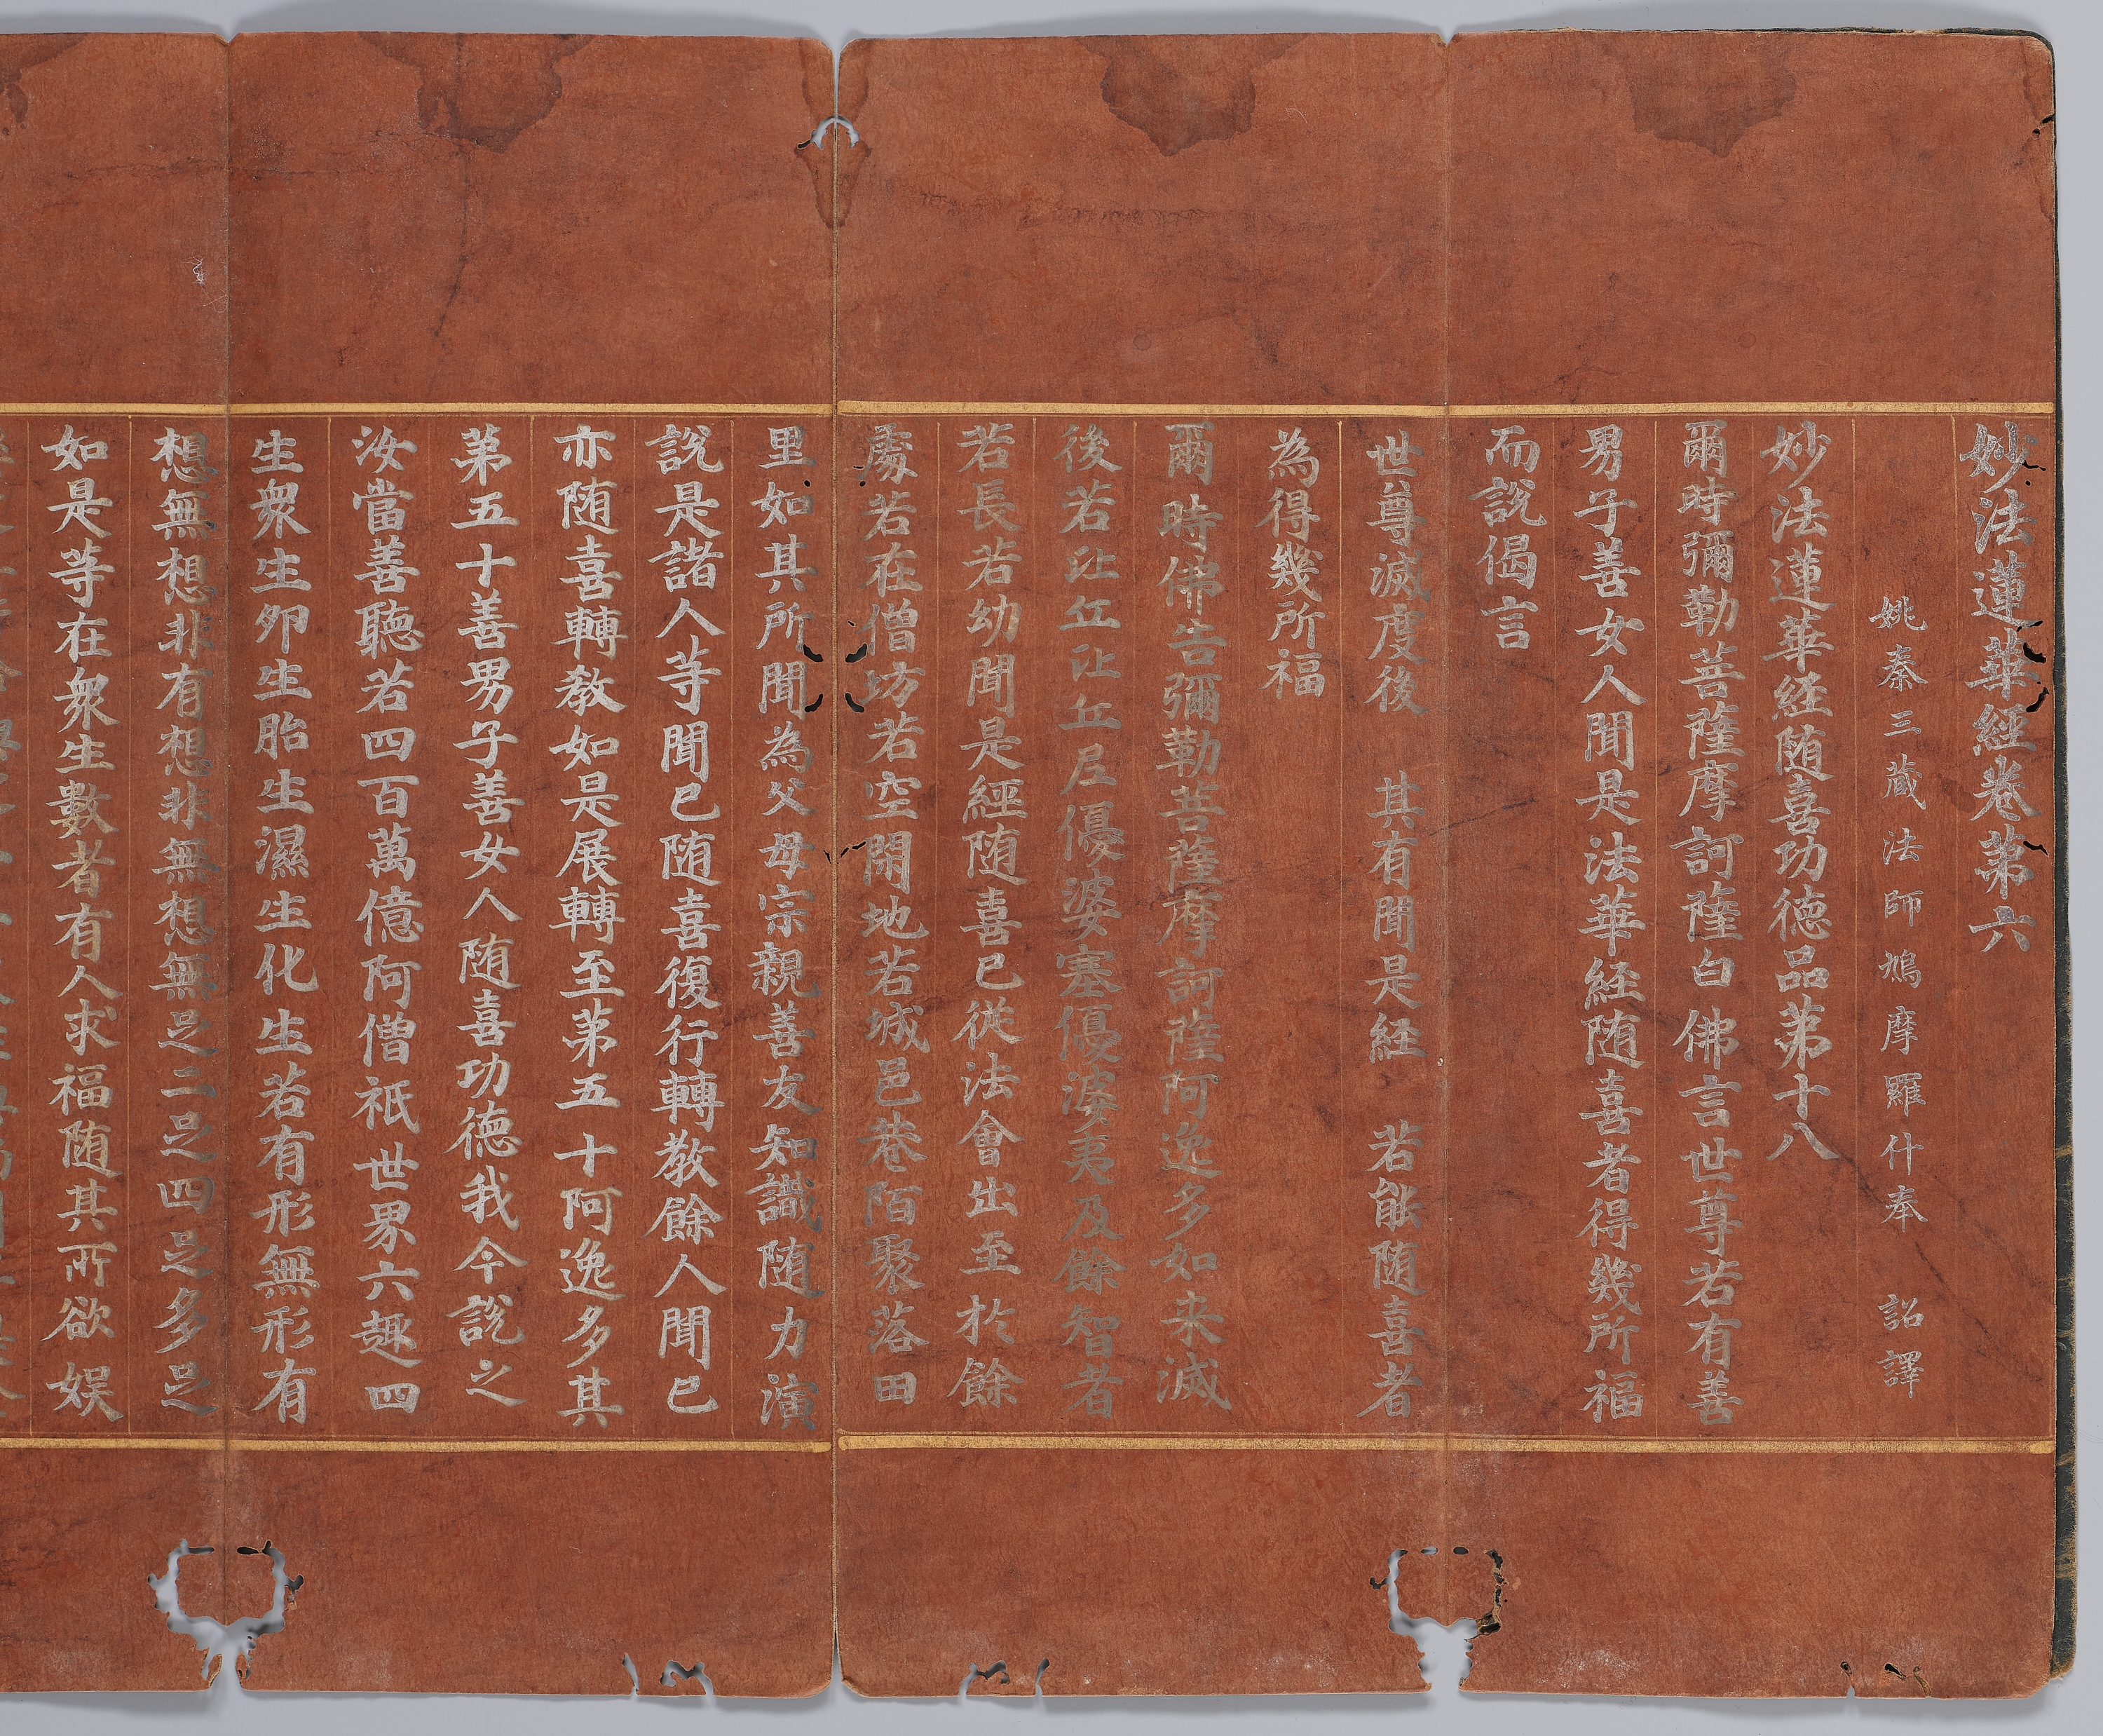 妙法蓮華經卷第六
姚秦三蔵法師鳩摩羅什奉　詔譯
妙法蓮華経随喜功徳品第十八
爾時彌勒菩薩摩訶薩白佛言世尊若有善
男子善女人聞是法華経随喜者得幾所福
而說偈言
世尊滅度後　其有聞是経　若能随喜者
為得幾所福
爾時佛告彌勒菩薩摩訶薩阿逸多如来滅
後若比丘比丘尼優婆塞優婆夷及餘智者
若長若幼聞是經随喜已從法會出至於餘
處若在僧坊若空閑地若城邑巷陌聚落田
里如其所聞為父母宗親善友知識随力演
說是諸人等聞已随喜復行轉教餘人聞已
亦随喜轉教如是展轉至第五十阿逸多其
第五十善男子善女人随喜功德我今說之
汝當善聽若四百萬億阿僧祇世界六趣四
生衆生卵生胎生濕生化生若有形無形有
想無想非有想非無想無足二足四足多足
如是等在衆生數者有人求福随其所欲娱